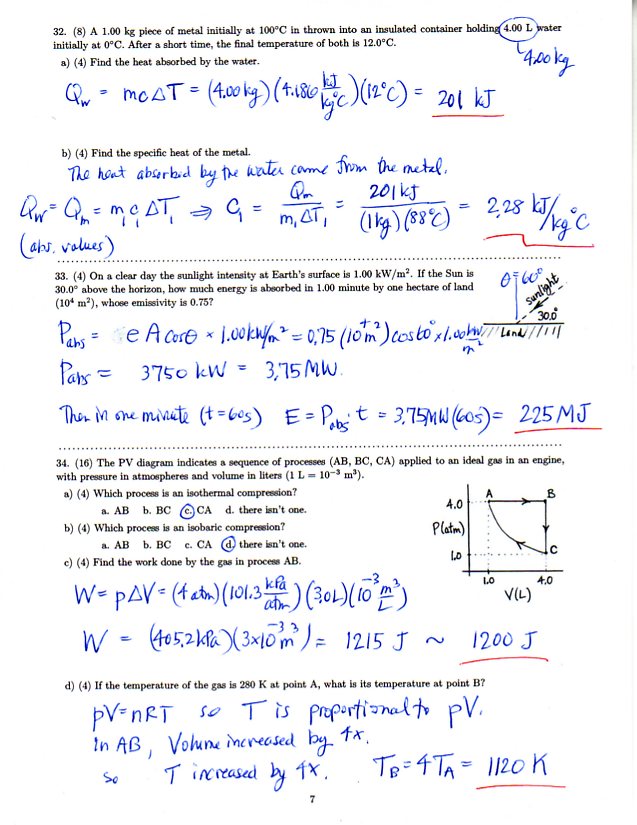 32. (8) A 1.00 kg piece of metal initially at 100°C in thrown into an insulated container holding 4.00 L water
initially at 0°C. After a short time, the final temperature of both is 12.0°C.
4.00 kg
a) (4) Find the heat absorbed by the water.
Qw = mcΔT = (4.00kg)(4.186 kJ/kg°C)(12°C) = 201 kJ
b) (4) Find the specific heat of the metal.
The heat absorbed by the water came from the metal.
Qw = Qm = m₁c₁ΔT₁ ⇒ C₁ = Qm/m₁ΔT₁ = 201kJ/(1kg)(88°C) = 2.28 kJ/kg°C
(abs. values)
33. (4) On a clear day the sunlight intensity at Earth's surface is 1.00 kW/m². If the Sun is
30.0° above the horizon, how much energy is absorbed in 1.00 minute by one hectare of land
(10⁴ m²), whose emissivity is 0.75?
θ=60°
sunlight
30.0°
Land
Pabs = eAcosθ × 1.00kW/m² = 0.75 (10⁴m²)cos60° × 1.00kW/m²
Pabs = 3750 kW = 3.75 MW.
Then in one minute (t=60s) E = Pabs·t = 3.75MW(60s) = 225 MJ
34. (16) The PV diagram indicates a sequence of processes (AB, BC, CA) applied to an ideal gas in an engine,
with pressure in atmospheres and volume in liters (1 L = 10⁻³ m³).
a) (4) Which process is an isothermal compression?
a. AB b. BC c. CA d. there isn't one.
b) (4) Which process is an isobaric compression?
a. AB b. BC c. CA d. there isn't one.
c) (4) Find the work done by the gas in process AB.
A B
4.0
P(atm)
1.0
C
1.0 4.0
V(L)
W = pΔV = (4 atm)(101.3 kPa/atm)(3.0L)(10⁻³ m³/L)
W = (405.2kPa)(3×10⁻³m³) = 1215 J ~ 1200 J
d) (4) If the temperature of the gas is 280 K at point A, what is its temperature at point B?
pV=nRT so T is proportional to pV.
In AB, Volume increased by 4x.
so T increased by 4x. TB = 4TA = 1120 K
7